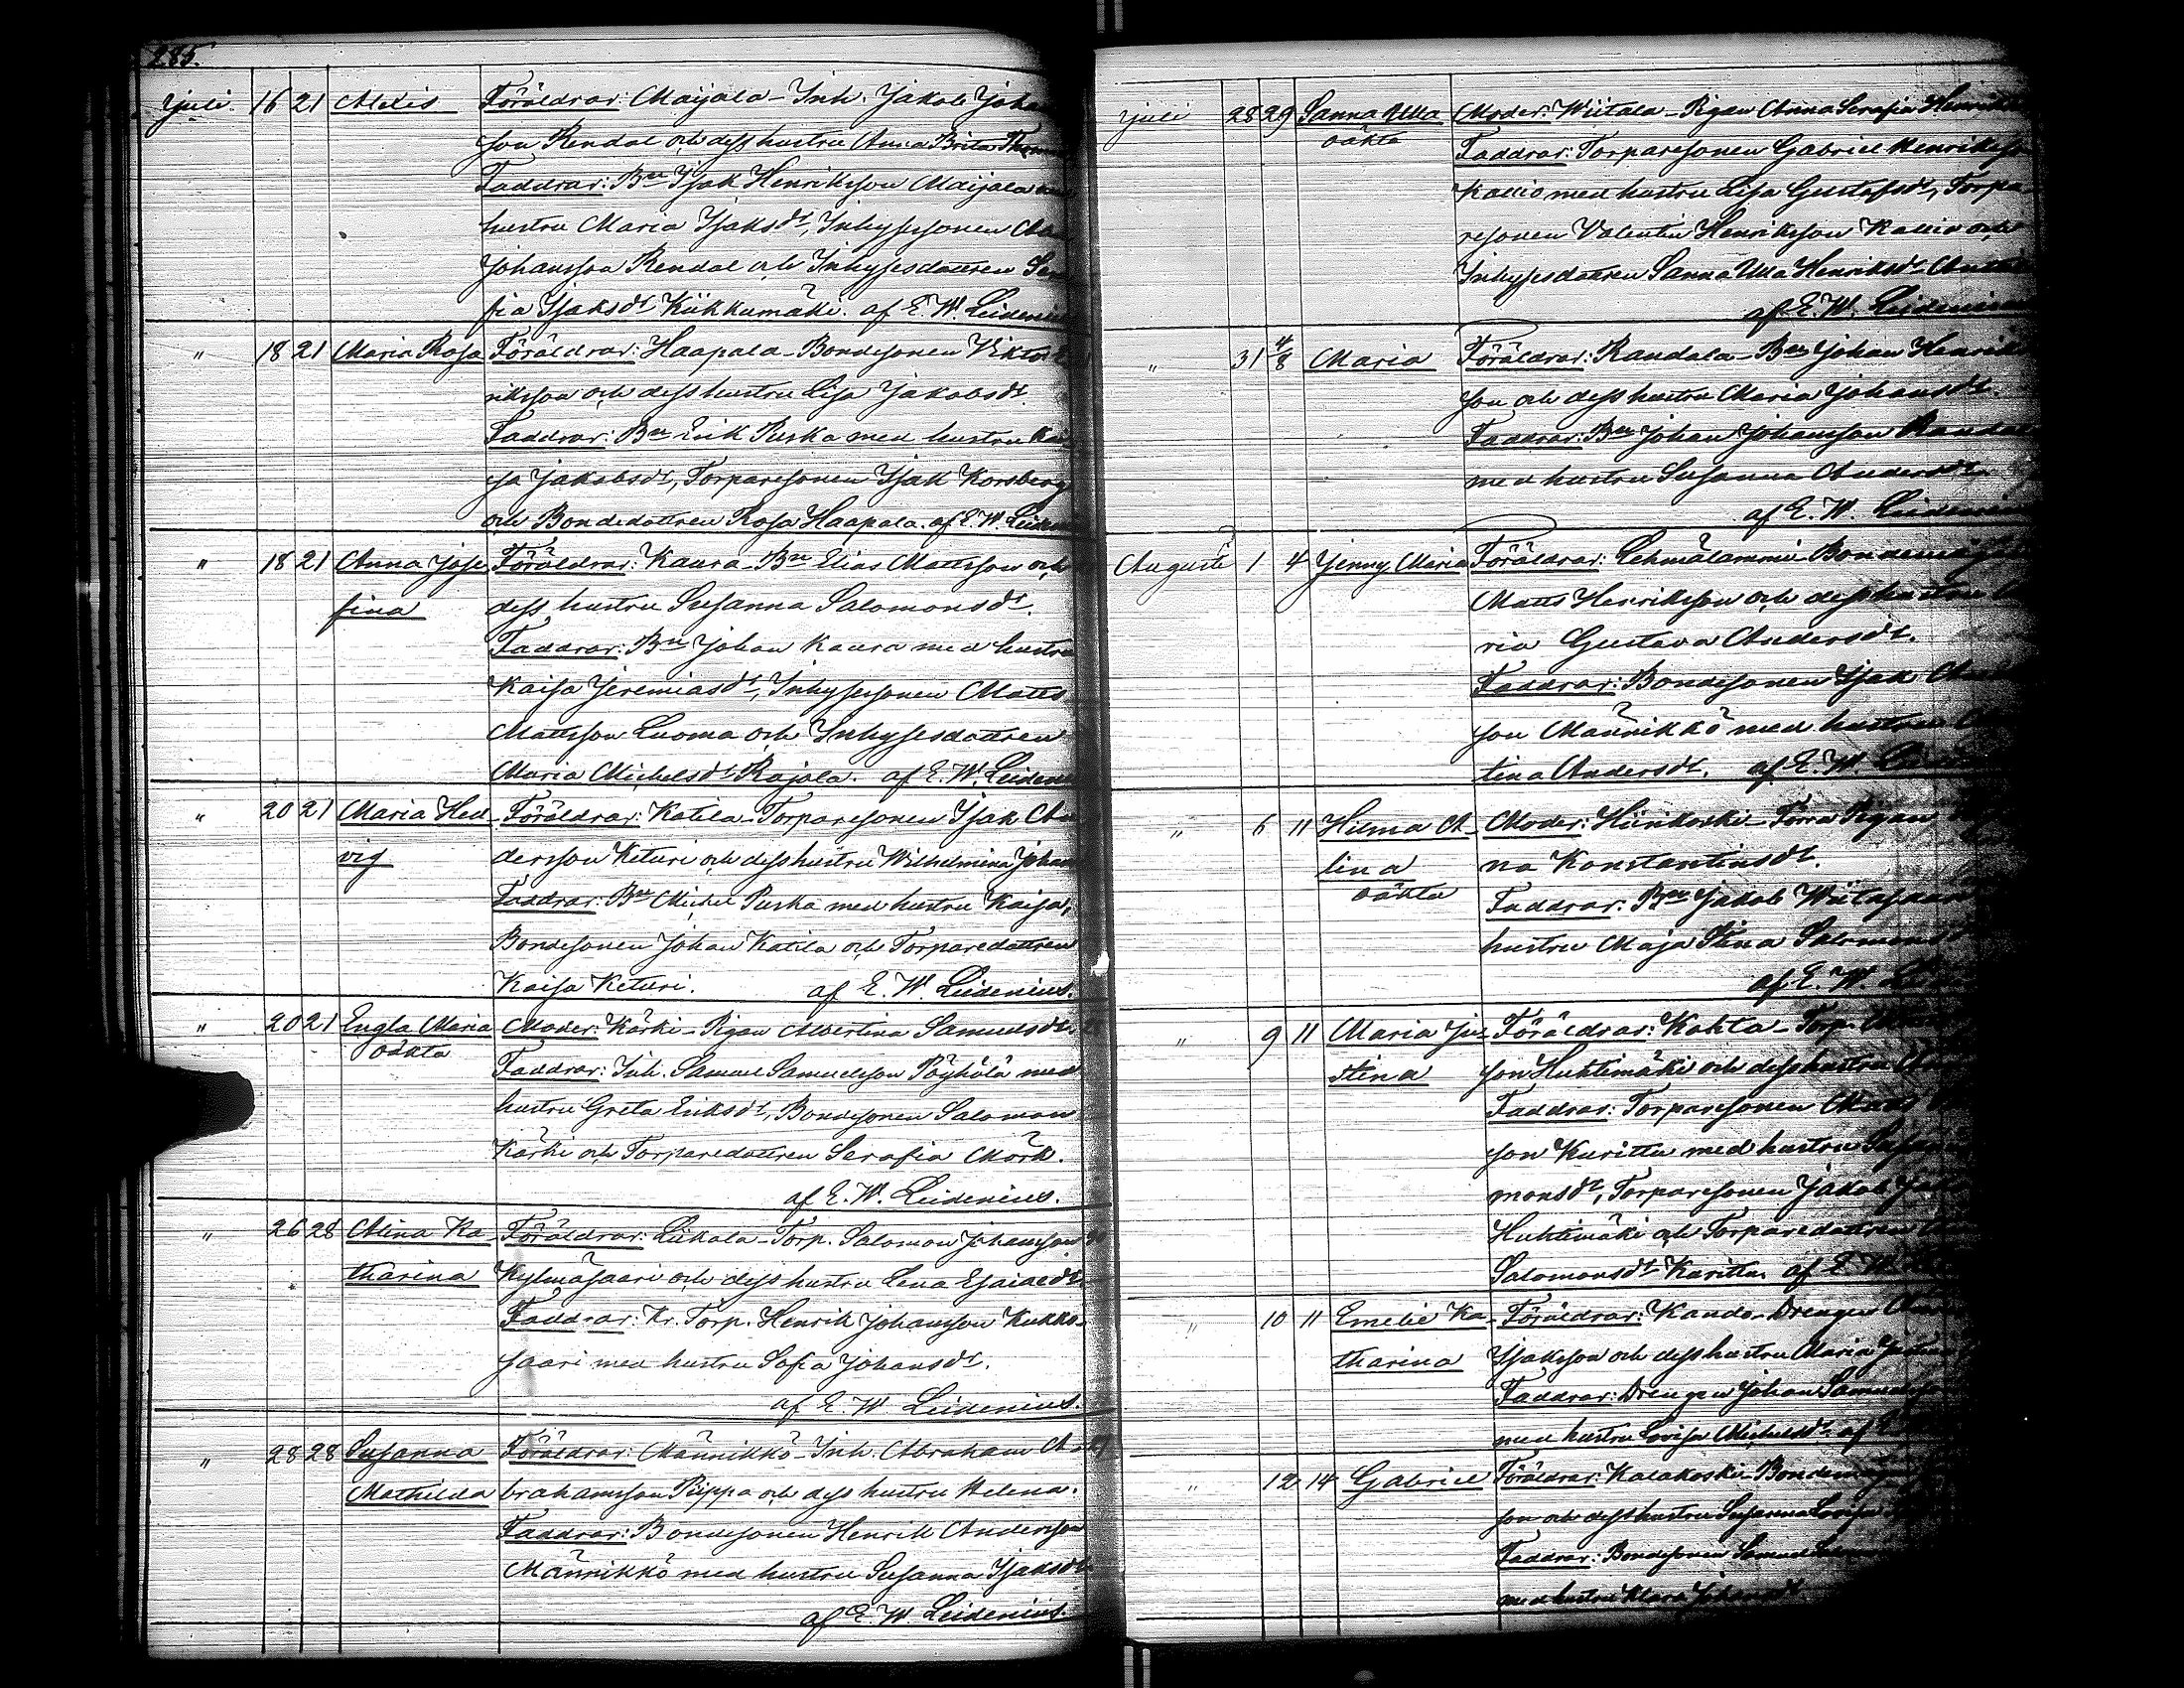 285.
Juli 16 21 Alexis Föräldrar: Maijala - Inh. Jakob Johan
son Rendal och dess hustru Anna Brita
Faddrar: Bn Isak Henriksson Maijala
hustru Maria Isaksdr, Inhysessonen
Johansson Rendal och Inhysesdottren
fia Isaksdr Kiikkumäki. af E. W. Leidenius
" 18 21 Maria Rosa Föräldrar: Haapala - Bondesonen Viktor
riksson och dess hustru Lisa Jakobsdr.
Faddrar: Bn Erik Puska med hustru Kai
sa Jakobsdr, Torparesonen Isak Korsberg
och Bondedottren Rosa Haapala. af E. W. Leiden
" 18 21 Anna Jose Föräldrar: Kaura - Bn Elias Mattsson och
fina dess hustru Susanna Salomonsdr.
Faddrar: Bn Johan Kaura med hustru
Kaisa Jeremiasdr, Inhysessonen Matts
Mattsson Luoma och Inhysesdottren
Maria Michelsdr Rajala. af E. W. Leiden
" 20 21 Maria Hed- Föräldrar: Katila - Torparesonen Isak An
vig dersson Keturi och dess hustru Wilhelmina Johan
Faddrar: Bn Michel Puska med hustru Kaisa,
Bondesonen Johan Katila och Torparedottren
Kaisa Keturi. af E. W. Leidenius.
" 20 21 Engla Maria Moder: Kärki - Pigan Albertina Samuelsdr.
oäkta Faddrar: Inh. Samuel Samuelsson Pöyhölä med
hustru Greta Eriksdr, Bondesonen Salomon
Kärki och Torparedottren Serafia Mörk.
af E. W. Leidenius.
" 26 28 Alina Ka- Föräldrar: Liikala - Torp. Salomon Johansson
tharina Kylmäsaari och dess hustru Lena Esaiaedr.
Faddrar: Kr. Torp. Henrik Johansson Kukko-
saari med hustru Sofia Johansdr.
af E. W. Leidenius.
" 28 28 Susanna Föräldrar: Männikkö - Inh. Abraham A-
Mathilda brahamsson Piippa och dess hustru Helena.
Faddrar: Bondesonen Henrik Andersson
Männikkö med hustru Susanna Isaksdr
af E. W. Leidenius.
Juli 28 29 Sanna Ulla Moder: Wiitala - Pigan Anna Serafia Henriks
oäkta Faddrar: Torparesonen Gabriel Henriksson
Kallio med hustru Lisa Gustafsdr, Torpa
resonen Valentin Henriksson Kallio och
Inhysesdottren Sanna Ulla Henriksdr
af E. W. Leidenius
" 31 4/8 Maria Föräldrar: Randala - Bn Johan Henriks
son och dess hustru Maria Johansdr.
Faddrar: Bn Johan Johansson Randa
med hustru Susanna Andersdr.
af E. W. Leidenius
Augusti 1 4 Jenny Maria Föräldrar: Lehmälammi - Bondemåg
Matts Henriksson och dess hustru
ria Gustava Andersdr.
Faddrar: Bondesonen Isak
son Männikkö med hustru
tina Andersdr. af E. W.
" 6 11 Hilma A- Moder: Hiinkoski - Förra Pigan
lina na Konstantinsdr.
oäkta Faddrar: Bn Jakob Wiitasaari
hustru Maja Stina Salomonsdr
af E. W.
" 9 11 Maria Ju- Föräldrar: Kahta - Torp.
stina son Huhtimäki och dess hustru
Faddrar: Torparesonen Matts
son Kuritta med hustru
monsdr, Torparesonen Jakob
Huhtimäki och Torparedottren
Salomonsdr Kuritta. af E. W.
" 10 11 Emelie Ka- Föräldrar: Kando - Drengen
tharina Isaksson och dess hustru Maria
Faddrar: Drengen Johan Samuelsson
med hustru Lovisa Michelsdr. af
" 12 14 Gabriel Föräldrar: Kalakoski - Bondemågen
son och dess hustru Susanna Lovisa
Faddrar: Bondesonen Samuel
med hustru Maria